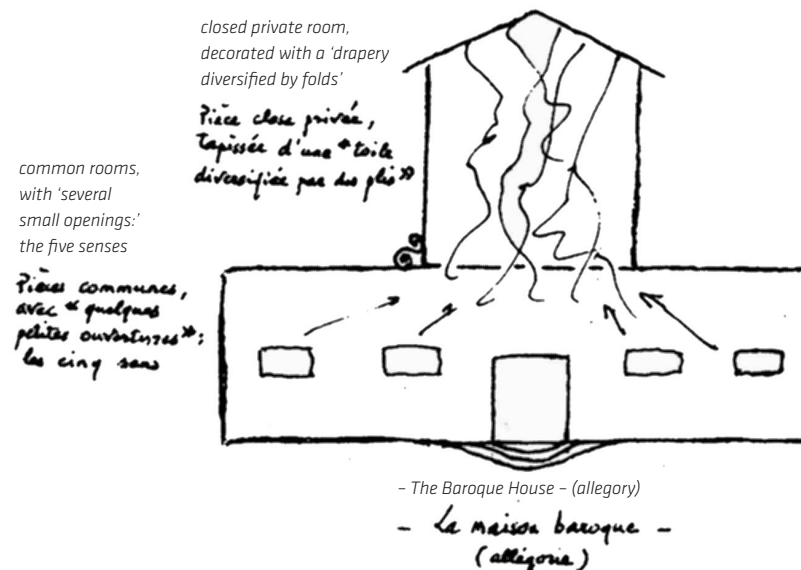 closed private room,
decorated with a ‘drapery
diversified by folds’
Pièce close privée,
tapissée d'une « toile
diversifiée par des plis »
common rooms,
with ‘several
small openings:’
the five senses
Pièces communes,
avec « quelques
petites ouvertures » :
les cinq sens
– The Baroque House – (allegory)
– La maison baroque –
(allégorie)